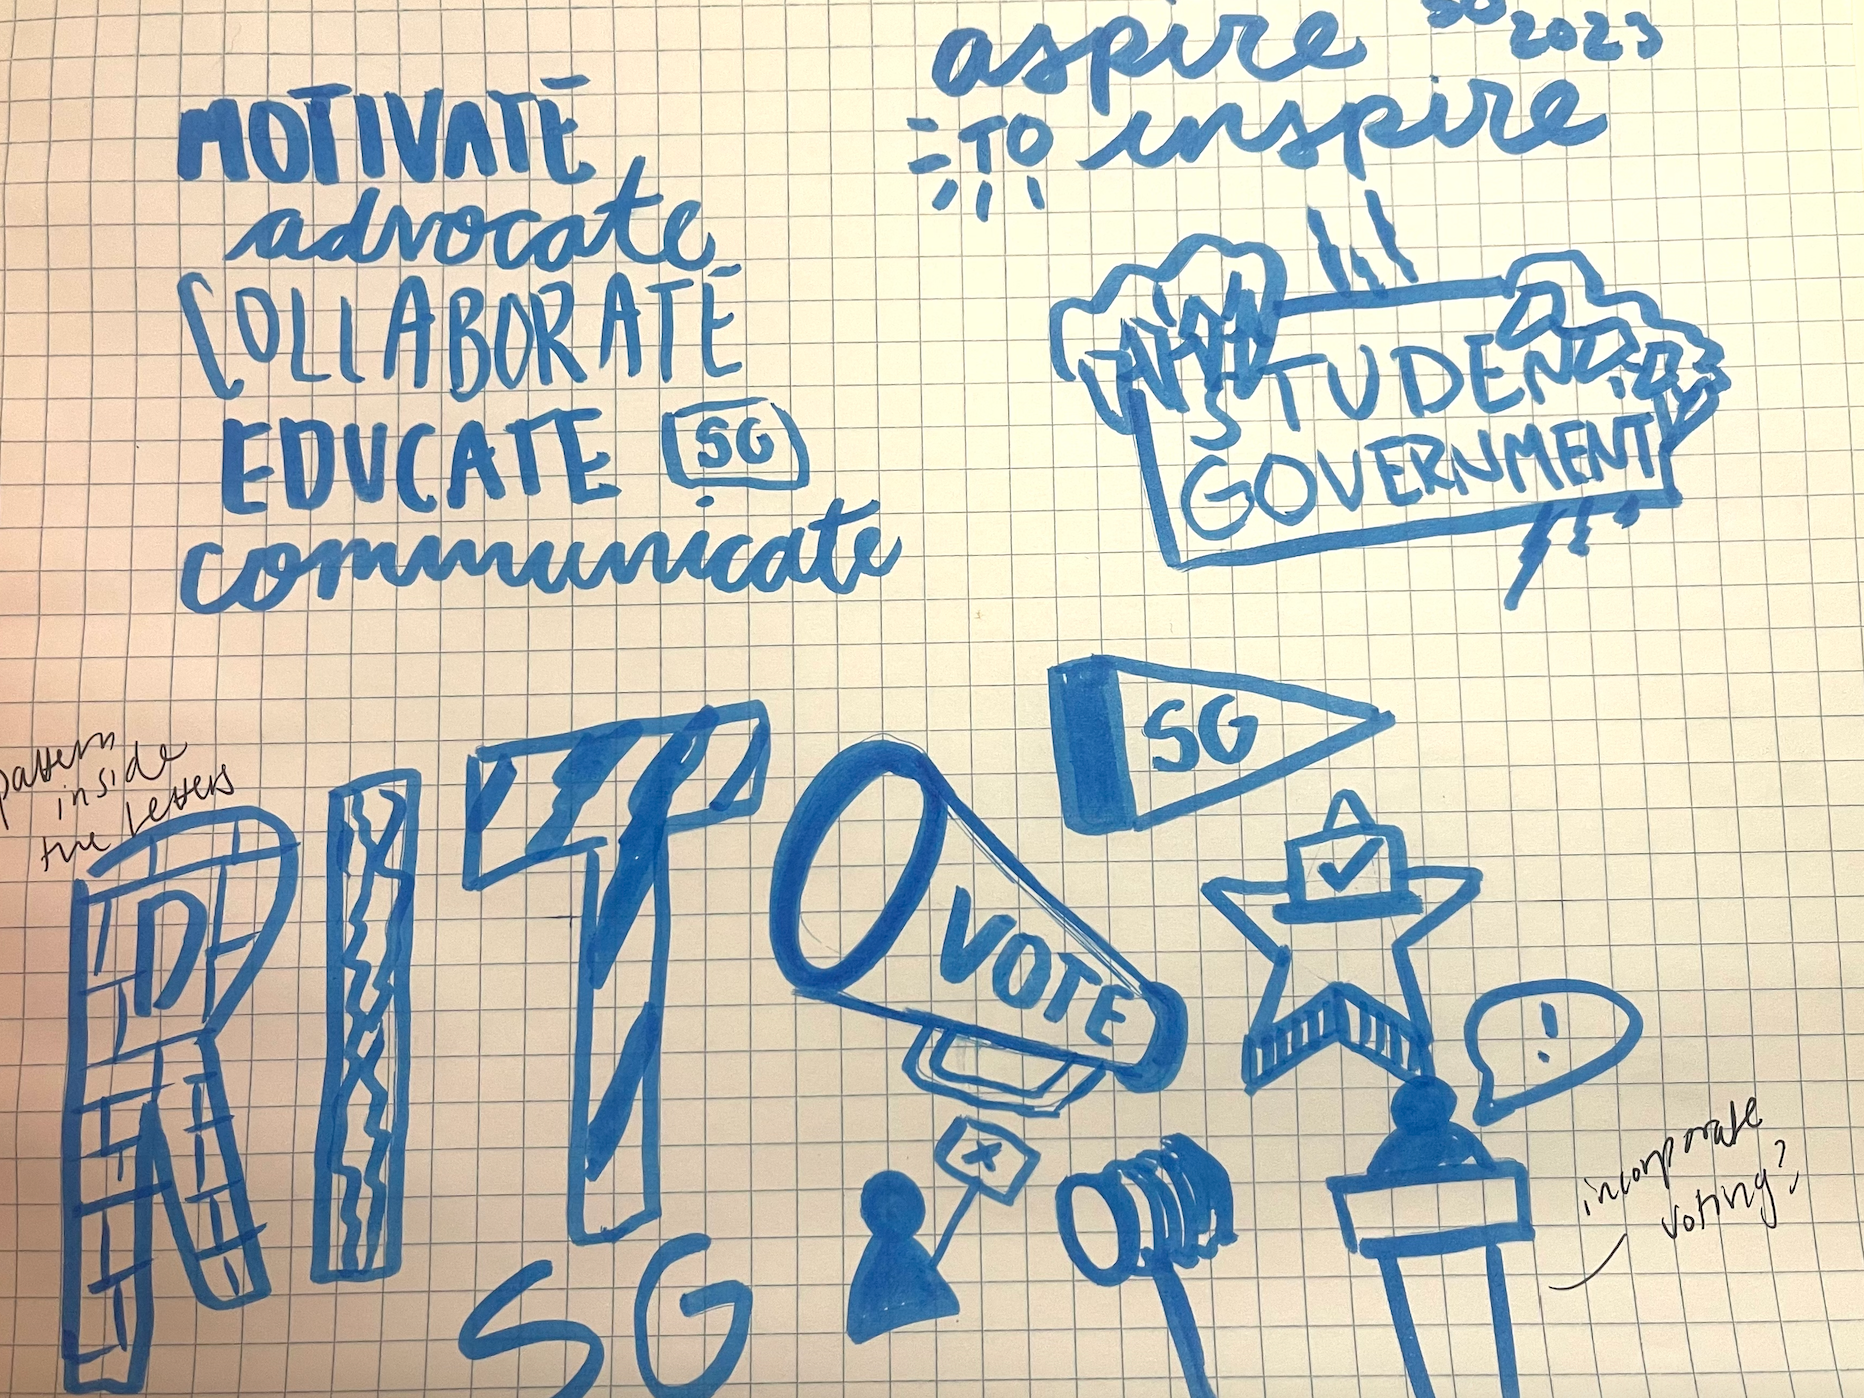 MOTIVATE
advocate
COLLABORATE
EDUCATE SG
communicate
aspire SG 2023
TO inspire
STUDENT
GOVERNMENT
pattern
inside
the letters
RIT
SG
VOTE
SG
!
x
incorporate
voting?